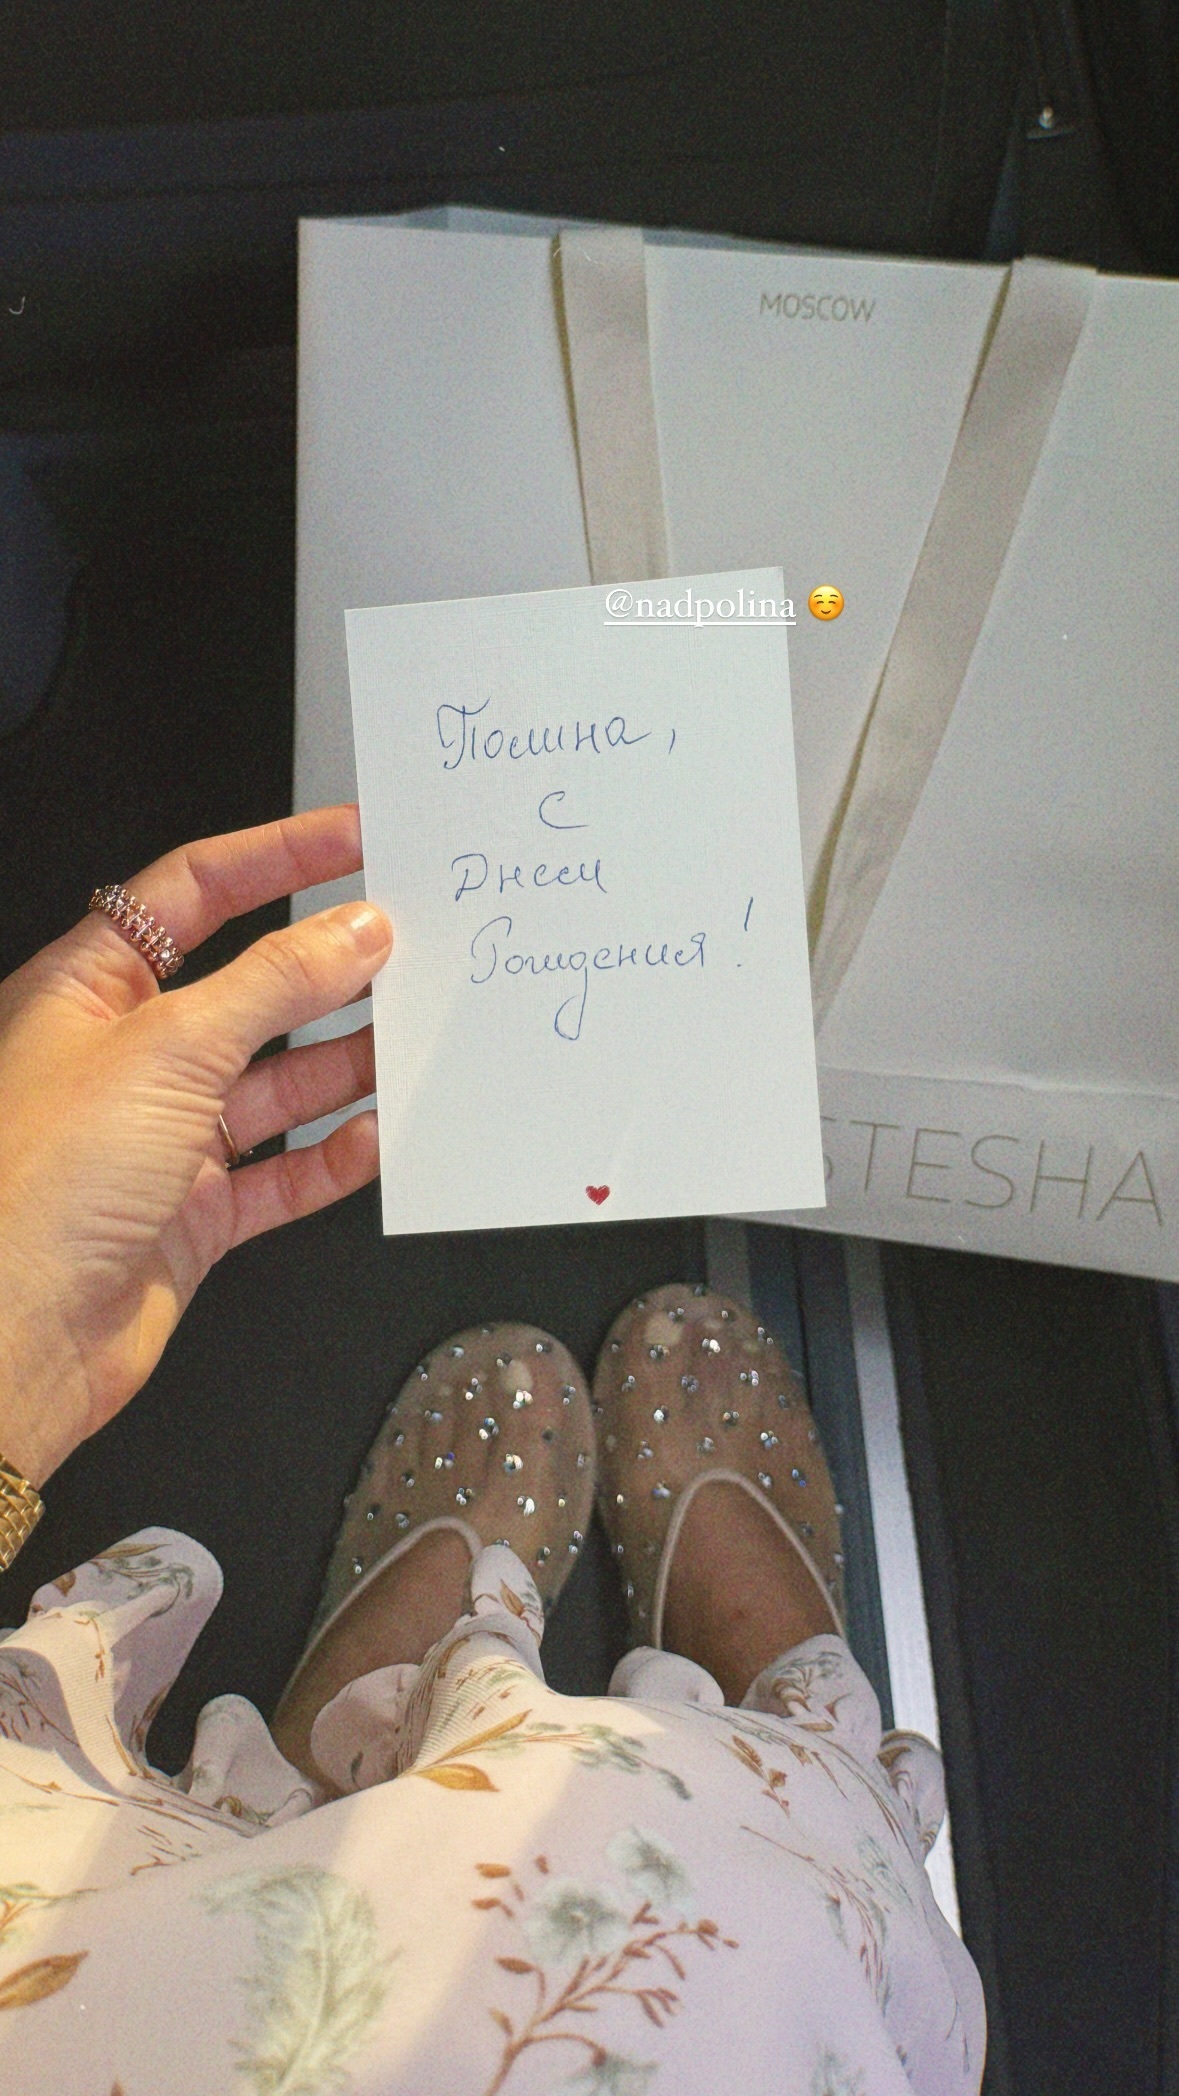 MOSCOW
@nadpolina ☺️
Полина,
с
Днем
Рождения!
STESHA